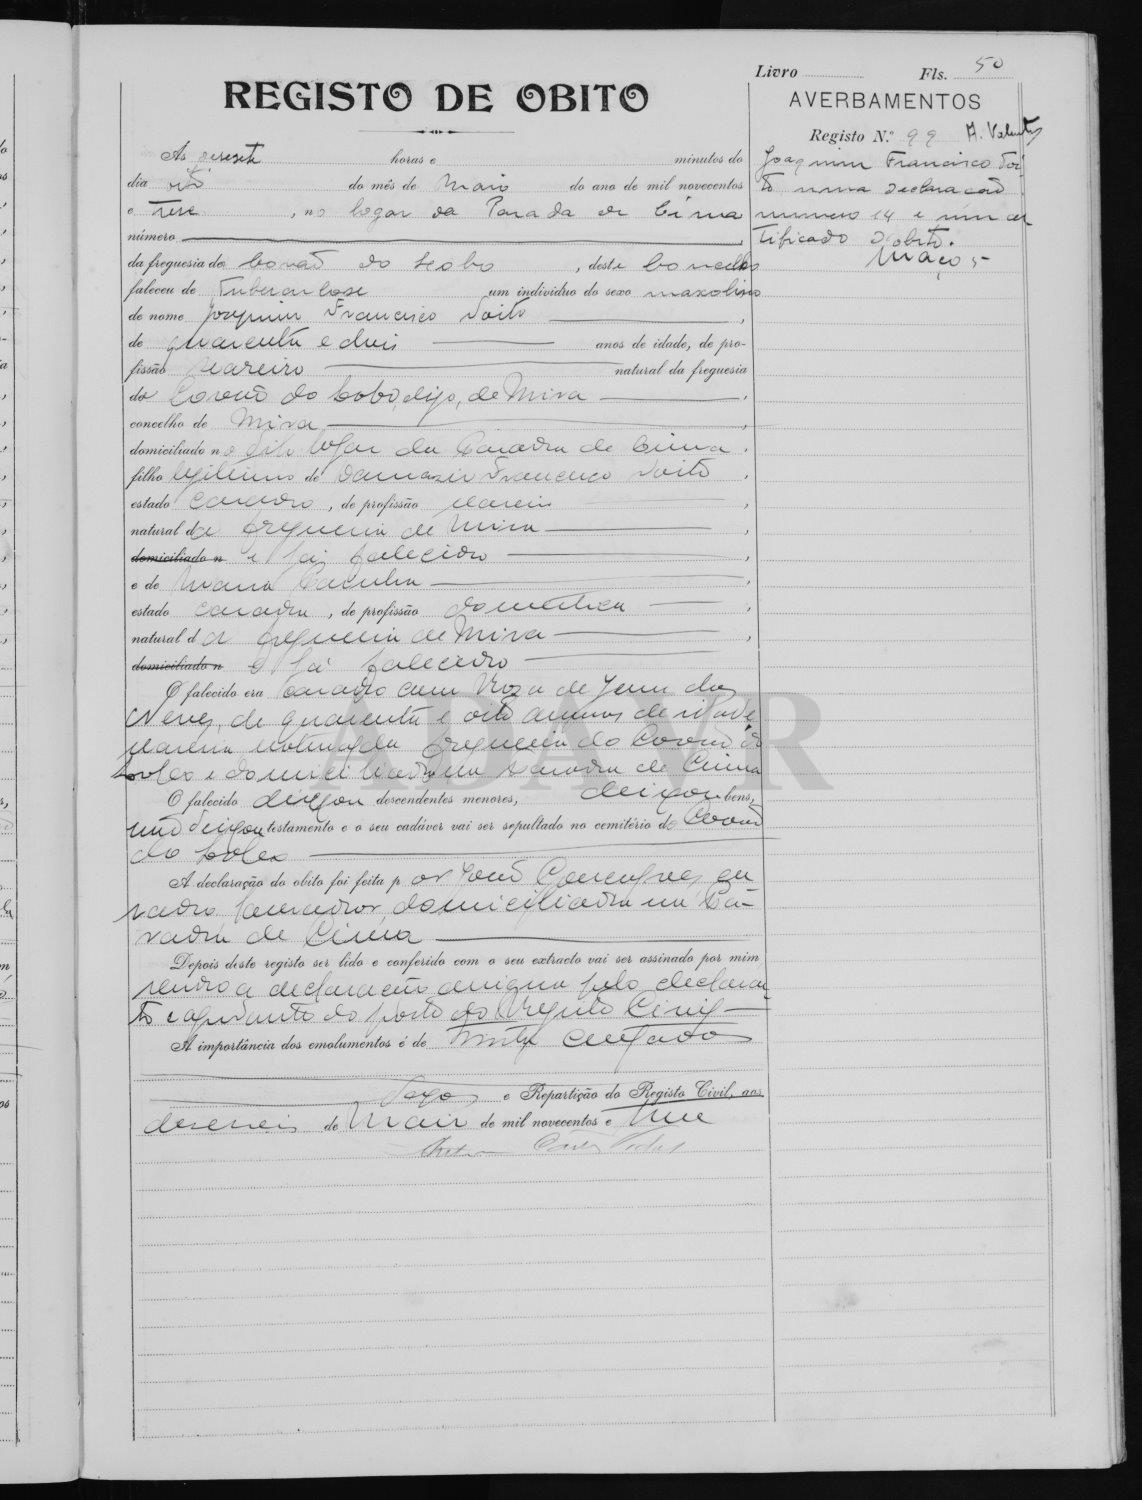 Livro Fls. 50
REGISTO DE OBITO
AVERBAMENTOS
Registo N.º 99 A. Valente
Às horas e minutos do
dia oito do mês de Maio do ano de mil novecentos
e treze, no logar da Parada de Cima
número
da freguesia do Covão do Lobo, deste concelho
faleceu de Tuberculose um individuo do sexo masculino
de nome Joaquim Francisco Toito
de quarenta e dois anos de idade, de pro-
fissão seareiro natural da freguesia
do Covão do Lobo, digo, de Mira
concelho de Mira
domiciliado no dito logar da Parada de Cima
filho legitimo de Damazio Francisco Toito
estado casado, de profissão seareiro
natural da freguesia de Mira
domiciliado n e já falecido
e de Maria
estado casada, de profissão domestica
natural da freguesia de Mira
domiciliado n e já falecido
O falecido era casado com Roza de Jesus das
Neves, de quarenta e oito annos de idade
seareira natural da freguesia do Covão do
Lobo e domiciliada na Parada de Cima
O falecido deixou descendentes menores, deixou bens,
não deixou testamento e o seu cadáver vai ser sepultado no cemitério do Covão
do Lobo
A declaração do obito foi feita por João Gonçalves, ca-
sado, lavrador, domiciliado na Pa-
rada de Cima
Depois deste registo ser lido e conferido com o seu extracto vai ser assinado por mim
sendo a declaração assignada pelo declaran-
te e ajudante do posto do Registo Civil
A importância dos emolumentos é de trinta centavos
e Repartição do Registo Civil, aos
dezeseis de Maio de mil novecentos e treze
Joaquim Francisco Toi-
to uma declaração
numero 14 e um cer
tificado d'obito.
Maço 5
ADAVR